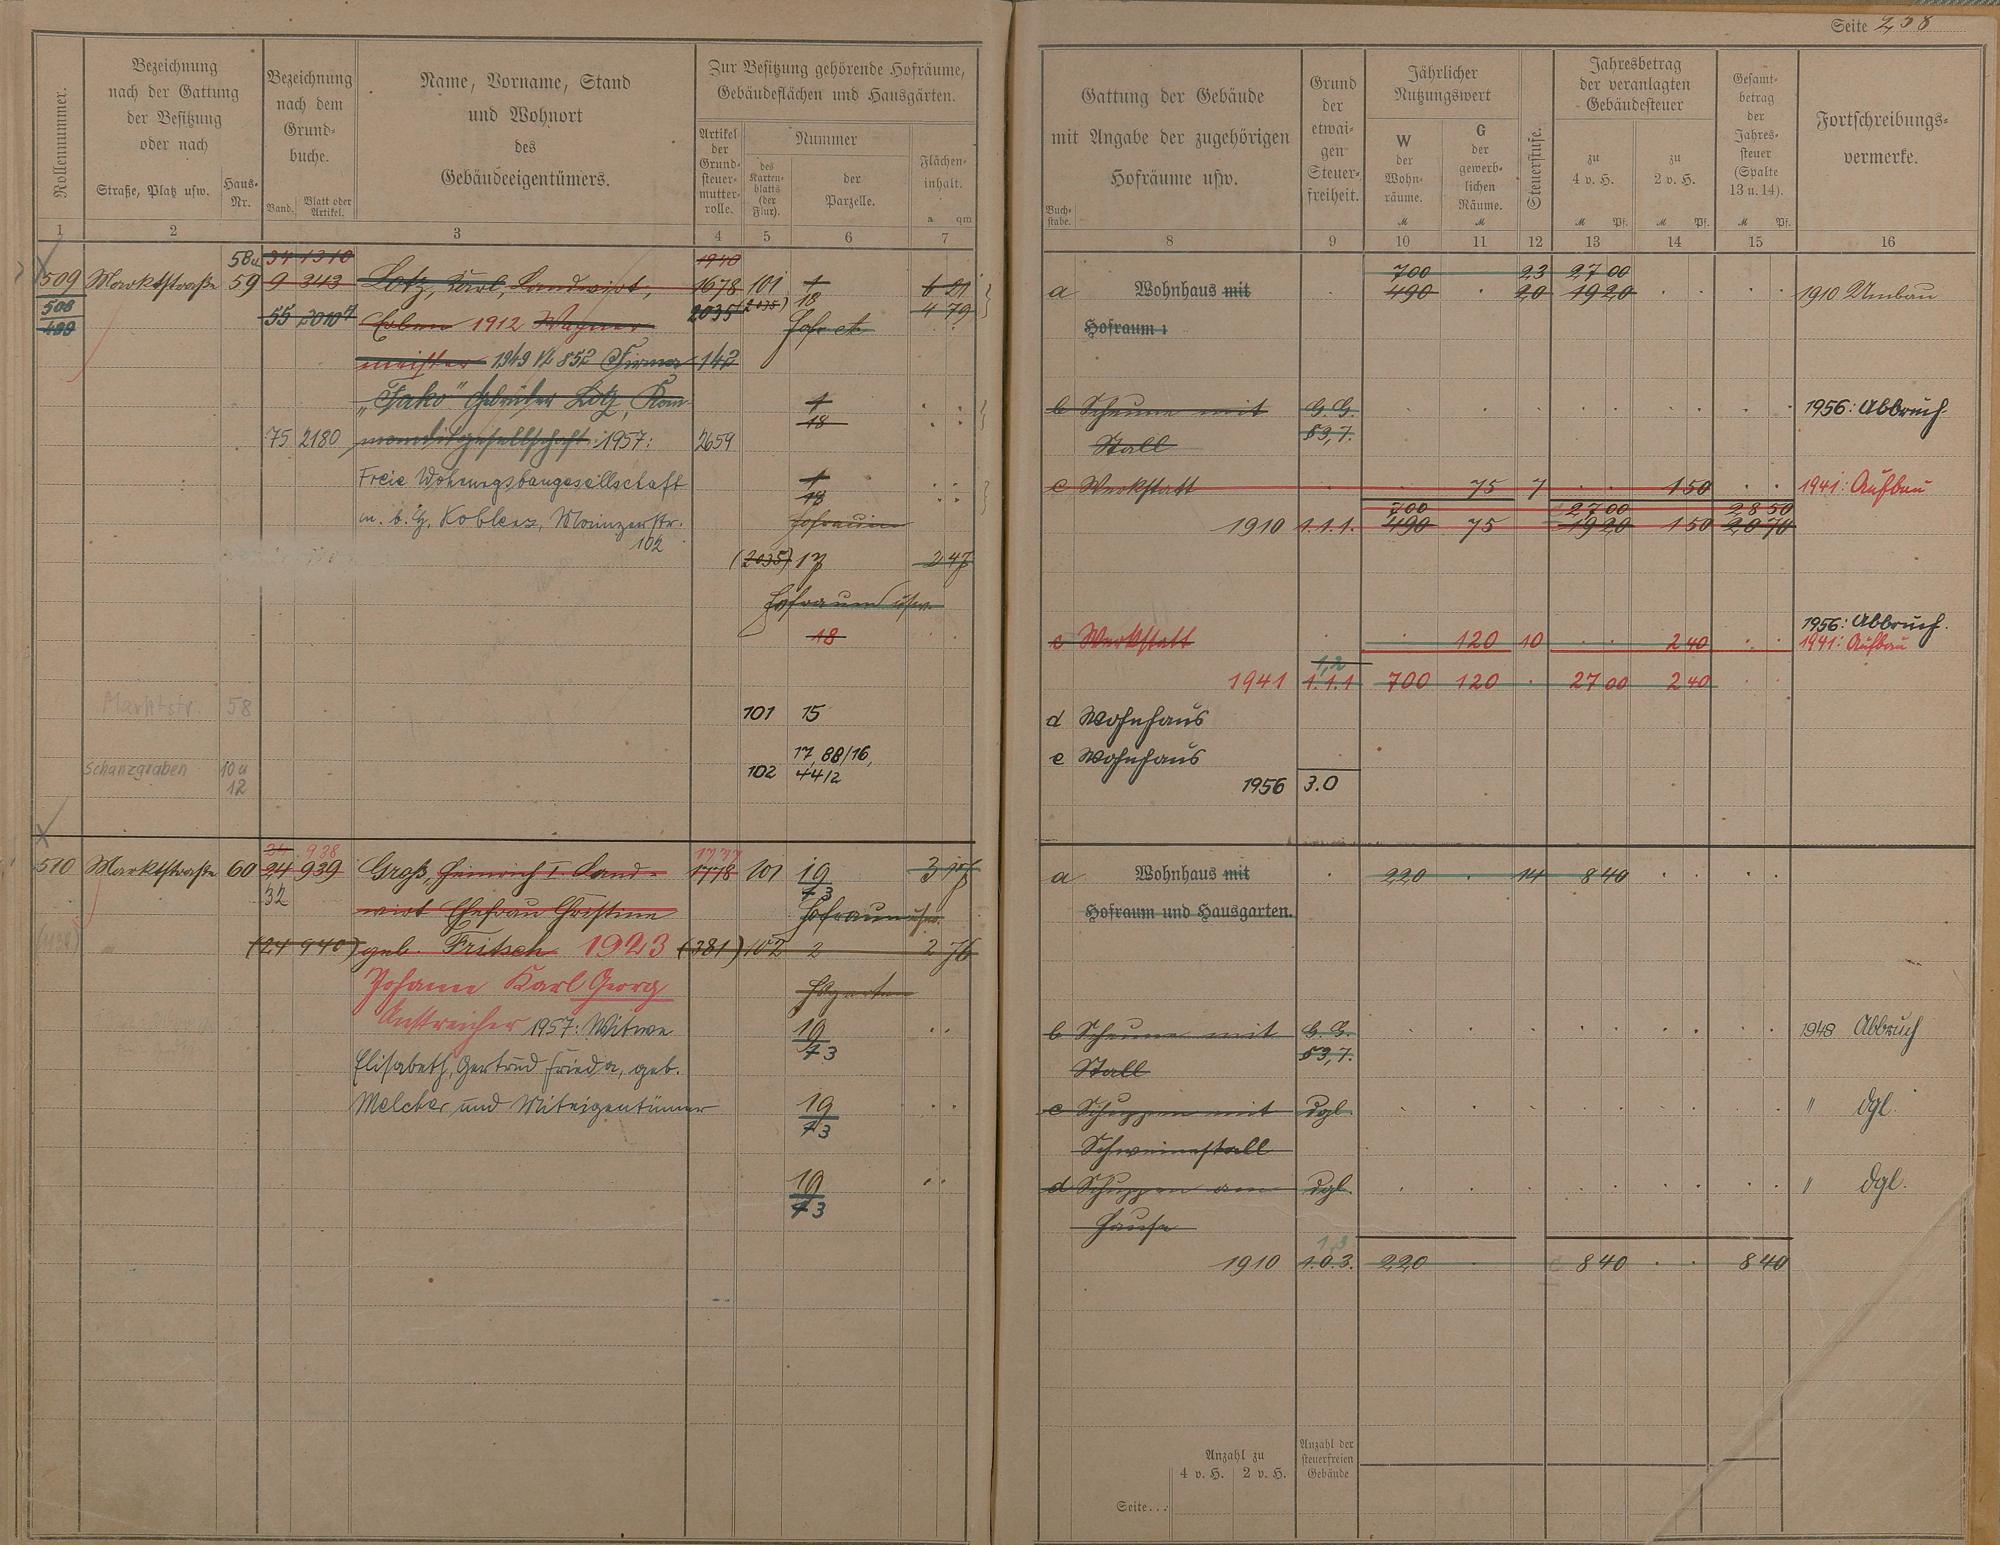 Seite 258
Rollennummer.
Bezeichnung
nach der Gattung
der Besitzung
oder nach
Straße, Platz usw.
Haus-
Nr.
Bezeichnung
nach dem
Grund-
buche.
Band.
Blatt oder
Artikel.
Name, Vorname, Stand
und Wohnort
des
Gebäudeeigentümers.
Zur Besitzung gehörende Hofräume,
Gebäudeflächen und Hausgärten.
Artikel
der
Grund-
steuer-
mutter-
rolle.
Nummer
des
Karten-
blatts
(der
Flur).
der
Parzelle.
Flächen-
inhalt.
a qm
1 2 3 4 5 6 7
58a 34 1310 1940
509 Marktstraße 59 9 343 Lotz, Karl, Landwirt, 1678 101 1 6 21
508 18 4 79
499 55 Erben 1912 Wagner 2035 (2035) Hofr etc
meister 1949 N 852 Firma 142
„Jako" Gebrüder Lotz, Kom
1
18
75 2180 manditgesellschaft. 1957: 2659
Freie Wohnungsbaugesellschaft 1
18
m. b. H. Koblenz, Mainzerstr. Hofraum
102
(2035) 17 2 47
Hofraum usw.
18
Marktstr. 58 101 15
17, 88/16,
Schanzgraben 10 u 102 44/2
12
24 938 1737
510 Marktstraße 60 24 939 Groß, Heinrich I Land- 1778 101 19
32 73
wirt Ehefrau Christine Hofraum usw.
(24 940) geb. Fritsch 1923 (381) 102 2 2 76
Johann Karl Georg Hsgarten
Anstreicher 1957: Witwe 19
73
Elisabeth, Gertrud Frieda, geb.
Melcher und Miteigentümer 19
73
19
73
Gattung der Gebäude
mit Angabe der zugehörigen
Hofräume usw.
Buch-
stabe.
Grund
der
etwai-
gen
Steuer-
freiheit.
Jährlicher
Nutzungswert
W
der
Wohn-
räume.
M
G
der
gewerb-
lichen
Räume.
M
Steuerstufe.
Jahresbetrag
der veranlagten
Gebäudesteuer
zu
4 v. H.
M Pf.
zu
2 v. H.
M Pf.
Gesamt-
betrag
der
Jahres-
steuer
(Spalte
13 u. 14).
M Pf.
Fortschreibungs-
vermerke.
8 9 10 11 12 13 14 15 16
700 23 27 00
a Wohnhaus mit 490 20 19 20 1910 Umbau
Hofraum 1
b Scheune mit G. G. 1956: Abbruch.
Stall §3,7.
c Werkstatt 75 7 1 50 1941: Aufbau
700 27 00 28 50
1910 1.1.1. 490 75 19 20 1 50 20 70
1956: Abbruch.
c Werkstatt 120 10 2 40 1941: Aufbau
1,2
1941 1.1.1 700 120 27 00 2 40
d Wohnhaus
e Wohnhaus
1956 3.0
a Wohnhaus mit 220 14 8 40
Hofraum und Hausgarten.
b Scheune mit G. G. 1948 Abbruch
Stall §3,7.
c Schuppen mit dgl. " dgl.
Schweinestall
d Schuppen am dgl. " dgl.
Hause
1,3
1910 1.0.3. 220 8 40 8 40
Anzahl zu
4 v. H. 2 v. H.
Anzahl der
steuerfreien
Gebäude
Seite...